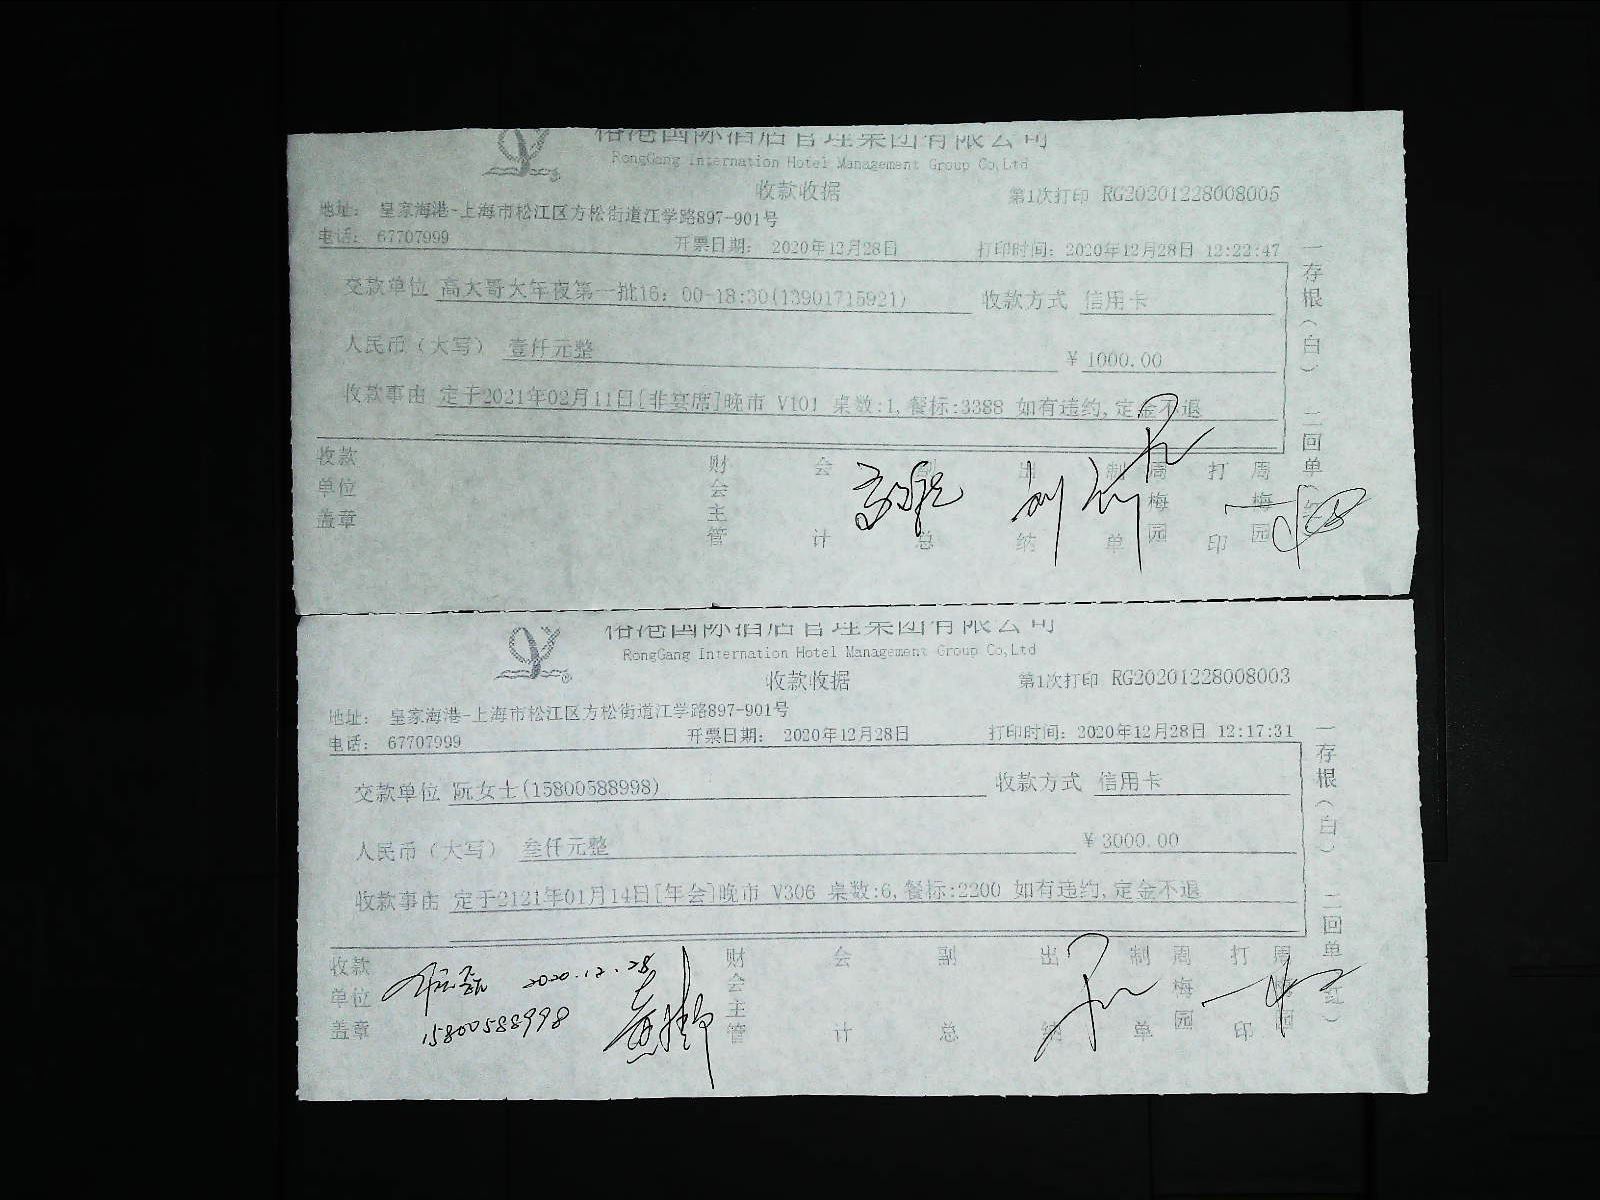 榕港国际酒店管理集团有限公司
RongGang Internation Hotel Management Group Co,Ltd
收款收据
第1次打印 RG20201228008005
地址: 皇家海港-上海市松江区方松街道江学路897-901号
电话: 67707999 开票日期: 2020年12月28日 打印时间: 2020年12月28日 12:22:47
交款单位 高大哥大年夜第一批16: 00-18:30(13901715921) 收款方式 信用卡
人民币（大写） 壹仟元整 ¥ 1000.00
收款事由 定于2021年02月11日[非宴席]晚市 V101 桌数:1,餐标:3388 如有违约,定金不退
收款单位盖章 财会主管 会计 副总 出纳 制单 周梅园 打印 周梅园
一存根（白） 二回单（红）
榕港国际酒店管理集团有限公司
RongGang Internation Hotel Management Group Co,Ltd
收款收据
第1次打印 RG20201228008003
地址: 皇家海港-上海市松江区方松街道江学路897-901号
电话: 67707999 开票日期: 2020年12月28日 打印时间: 2020年12月28日 12:17:31
交款单位 阮女士(15800588998) 收款方式 信用卡
人民币（大写） 叁仟元整 ¥ 3000.00
收款事由 定于2121年01月14日[年会]晚市 V306 桌数:6,餐标:2200 如有违约,定金不退
收款单位盖章 财会主管 会计 副总 出纳 制单 周梅园 打印 周梅园
2020.12.28
15800588998
一存根（白） 二回单（红）